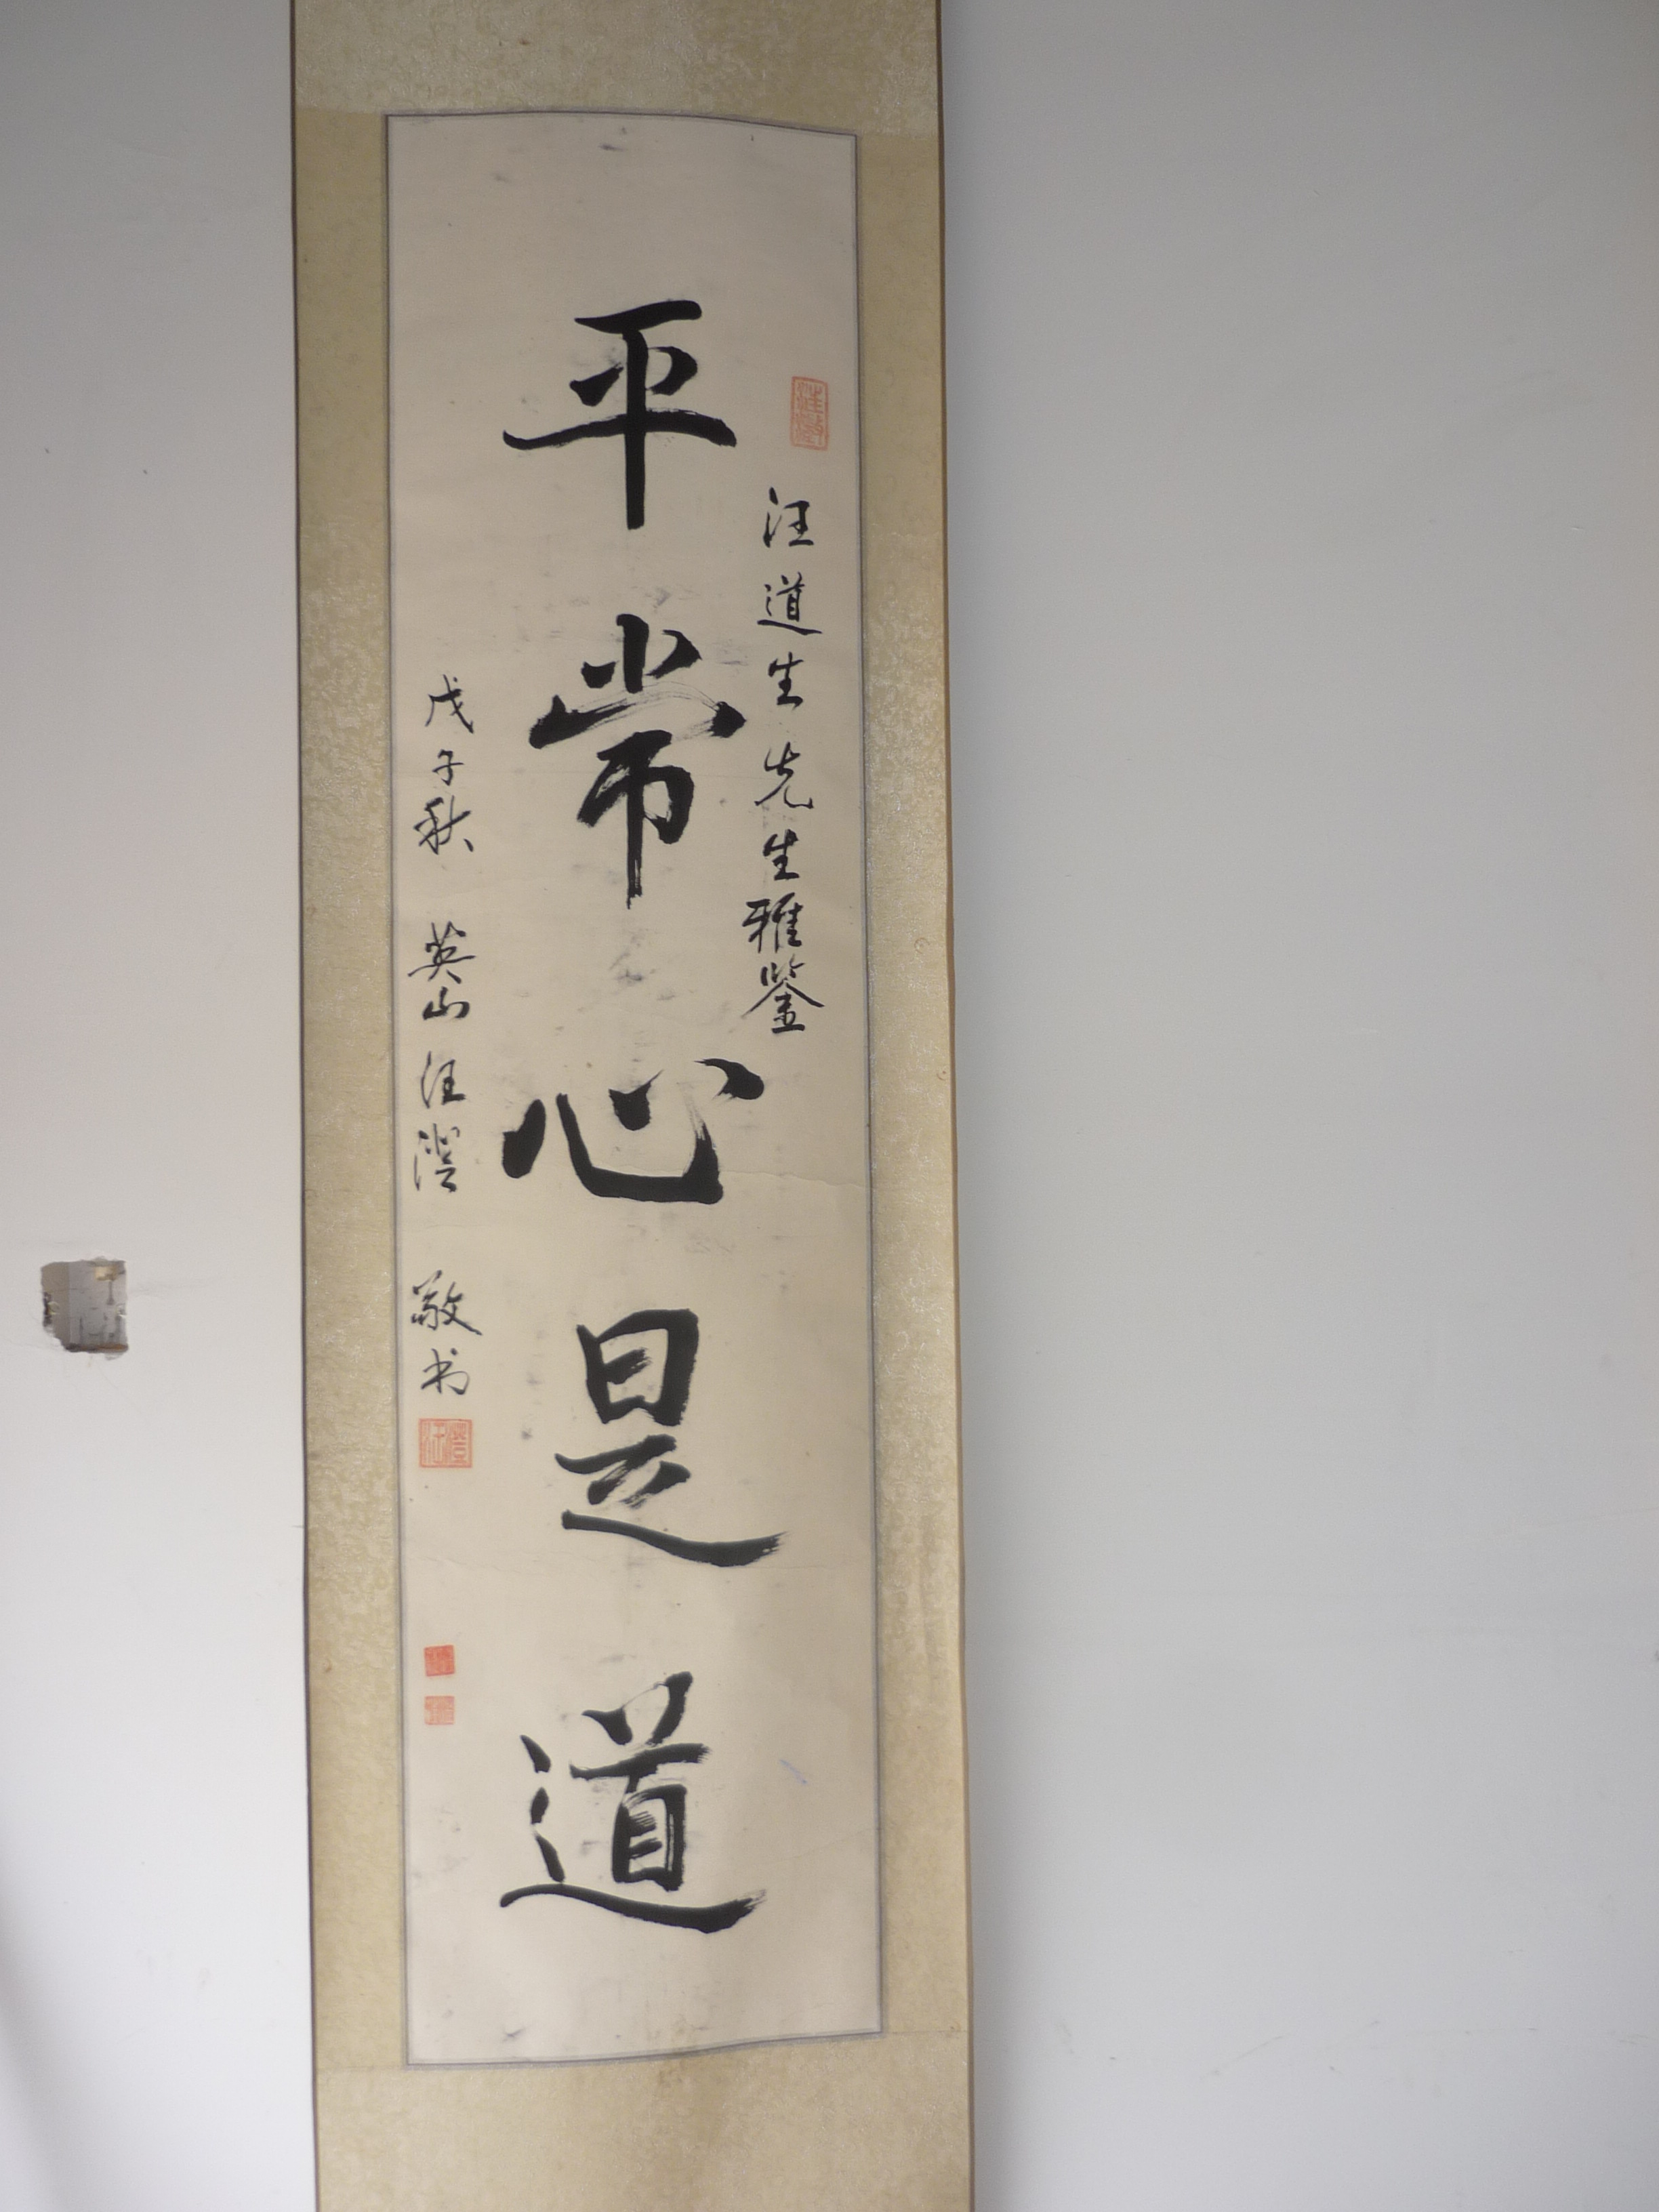 汪道生先生雅鉴
平常心是道
戊子秋 英山汪 敬书